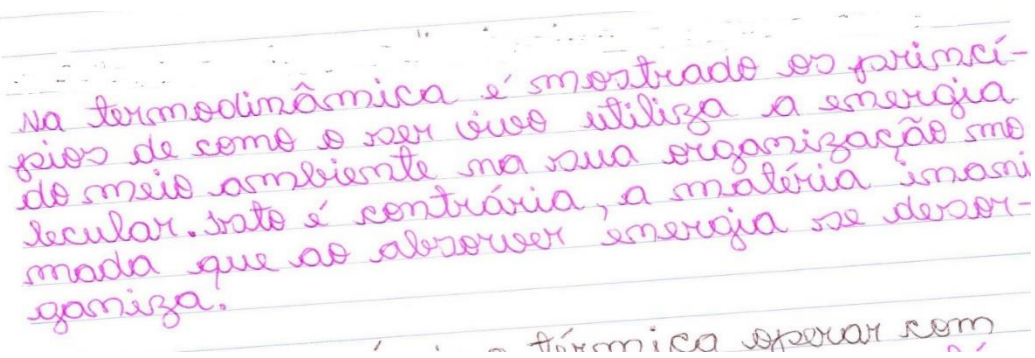 Na termodinâmica é mostrado os princí-
pios de como o ser vivo utiliza a energia
do meio ambiente na sua organização mo
lecular. Isto é contrária, a matéria inani
mada que ao absorver energia se desor-
ganiza.
térmica operar com